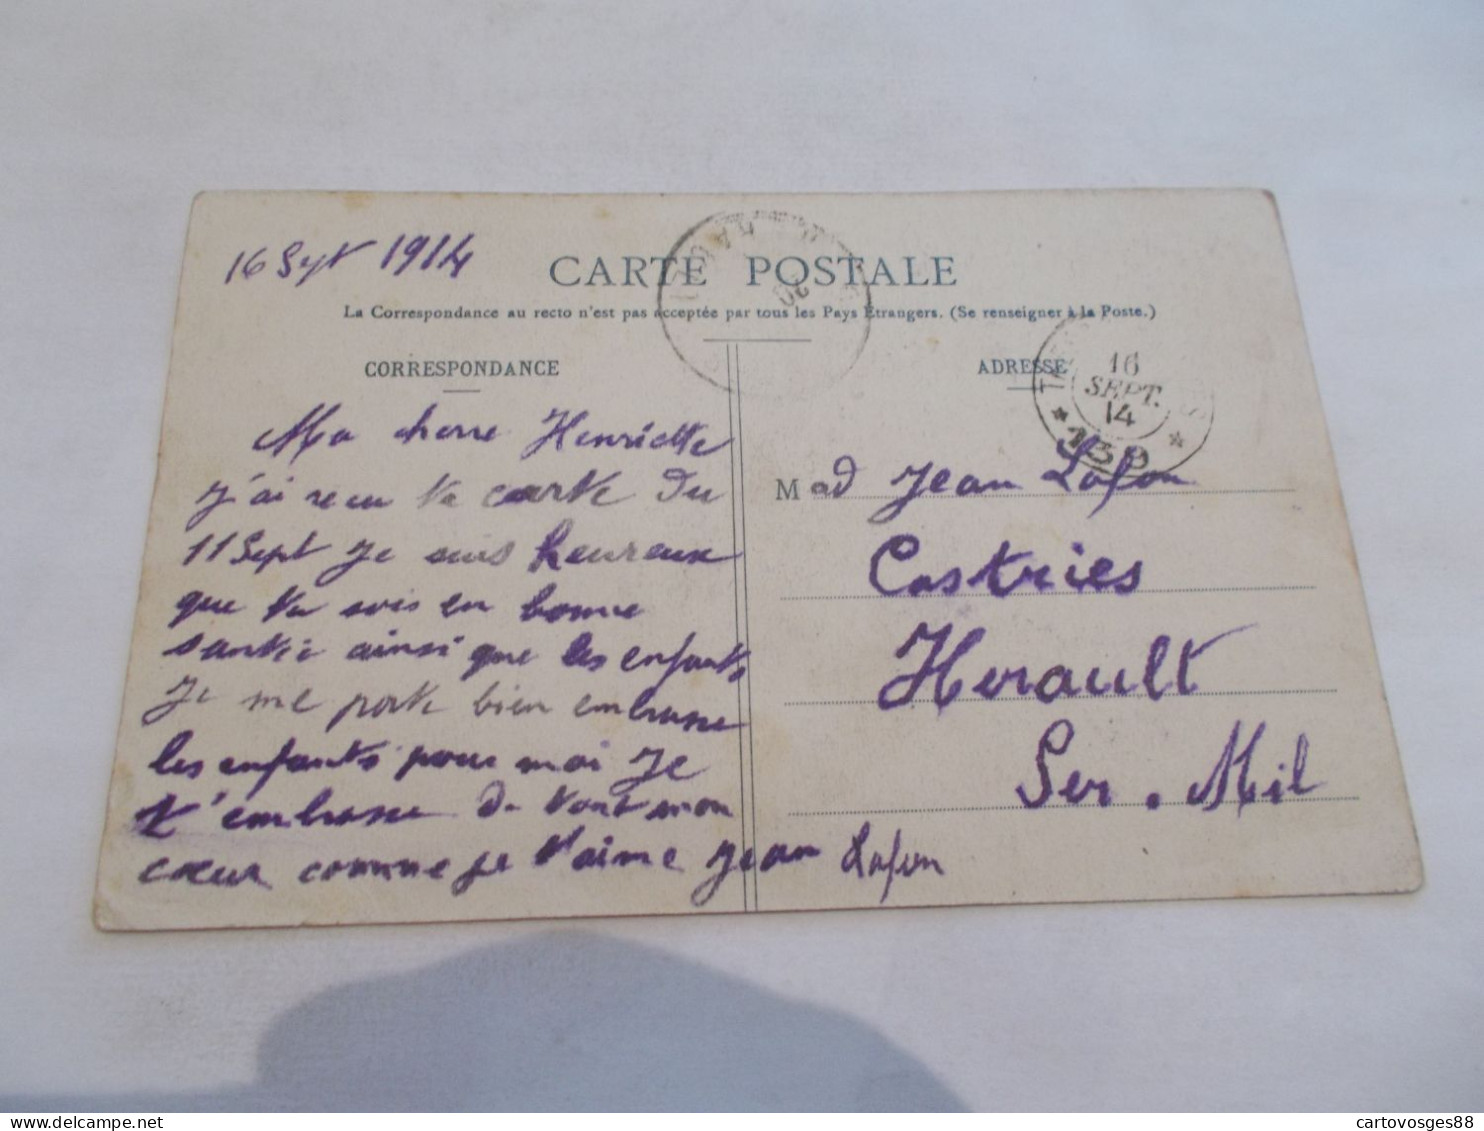 16 Sept 1914
CARTE POSTALE
La Correspondance au recto n'est pas acceptée par tous les Pays Étrangers. (Se renseigner à la Poste.)
CORRESPONDANCE
Ma cherre Henriette
j'ai recu ta carte du
11 Sept Je suis heureux
que tu sois en bonne
santée ainsi que les enfants
Je me porte bien embrasse
les enfants pour moi Je
t'embrasse de tout mon
cœur comme je t'aime Jean Lafon
ADRESSE
16
SEPT.
14
*139*
Mad Jean Lafon
Castries
Herault
Ser. Mil
cartovosges88